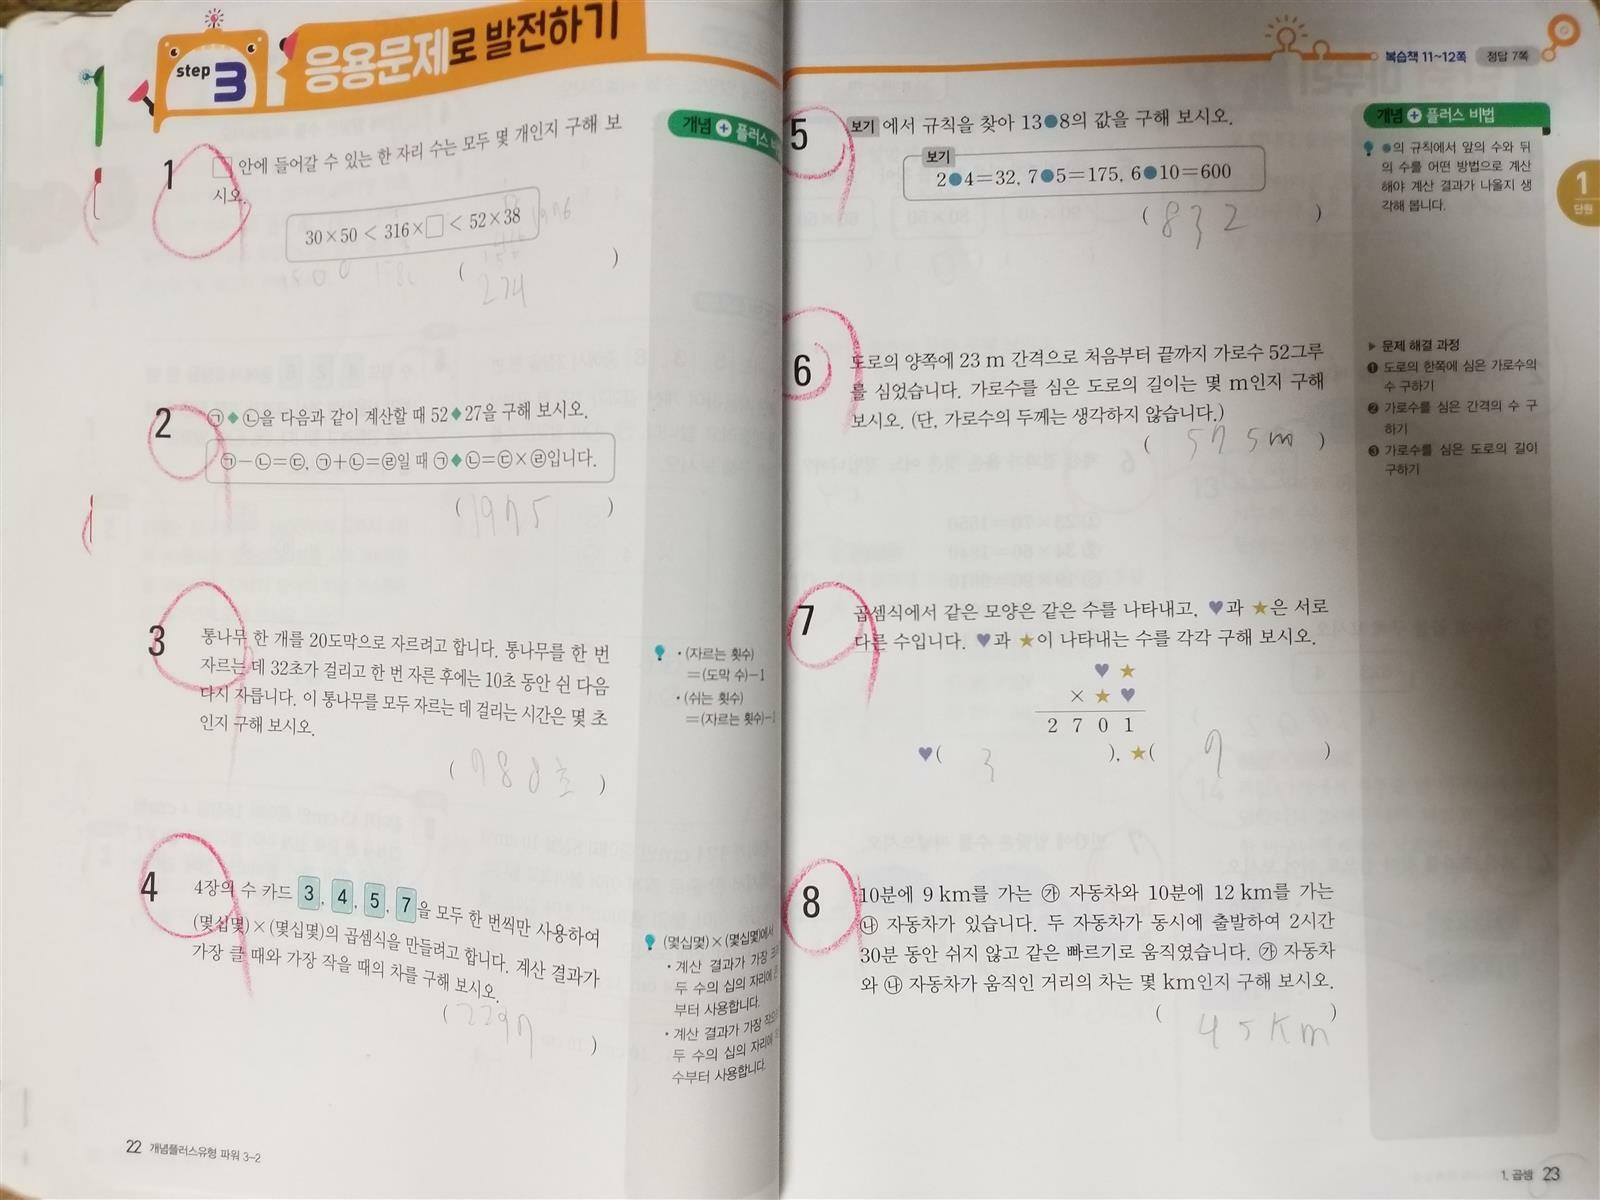 step 3 응용문제로 발전하기
복습책 11~12쪽 정답 7쪽
1 □ 안에 들어갈 수 있는 한 자리 수는 모두 몇 개인지 구해 보
시오.
30×50 < 316×□ < 52×38
1976
( 2개 )
개념 + 플러스 비법
2 ㉠◆㉡을 다음과 같이 계산할 때 52◆27을 구해 보시오.
㉠-㉡=㉢, ㉠+㉡=㉣일 때 ㉠◆㉡=㉢×㉣입니다.
( 1975 )
3 통나무 한 개를 20도막으로 자르려고 합니다. 통나무를 한 번
자르는 데 32초가 걸리고 한 번 자른 후에는 10초 동안 쉰 다음
다시 자릅니다. 이 통나무를 모두 자르는 데 걸리는 시간은 몇 초
인지 구해 보시오.
( 788초 )
• (자르는 횟수)
=(도막 수)-1
• (쉬는 횟수)
=(자르는 횟수)-1
4 4장의 수 카드 3, 4, 5, 7을 모두 한 번씩만 사용하여
(몇십몇)×(몇십몇)의 곱셈식을 만들려고 합니다. 계산 결과가
가장 클 때와 가장 작을 때의 차를 구해 보시오.
( 2297 )
(몇십몇)×(몇십몇)에서
• 계산 결과가 가장
두 수의 십의 자리에
부터 사용합니다.
• 계산 결과가 가장
두 수의 십의 자리에
수부터 사용합니다.
22 개념플러스유형 파워 3-2
5 보기 에서 규칙을 찾아 13●8의 값을 구해 보시오.
보기
2●4=32, 7●5=175, 6●10=600
( 832 )
개념 + 플러스 비법
●의 규칙에서 앞의 수와 뒤
의 수를 어떤 방법으로 계산
해야 계산 결과가 나올지 생
각해 봅니다.
1
단원
6 도로의 양쪽에 23 m 간격으로 처음부터 끝까지 가로수 52그루
를 심었습니다. 가로수를 심은 도로의 길이는 몇 m인지 구해
보시오. (단, 가로수의 두께는 생각하지 않습니다.)
( 575m )
▶ 문제 해결 과정
❶ 도로의 한쪽에 심은 가로수의
수 구하기
❷ 가로수를 심은 간격의 수 구
하기
❸ 가로수를 심은 도로의 길이
구하기
7 곱셈식에서 같은 모양은 같은 수를 나타내고, ♥과 ★은 서로
다른 수입니다. ♥과 ★이 나타내는 수를 각각 구해 보시오.
♥ ★
× ★ ♥
2 7 0 1
♥( 3 ), ★( 7 )
8 10분에 9 km를 가는 ㉮ 자동차와 10분에 12 km를 가는
㉯ 자동차가 있습니다. 두 자동차가 동시에 출발하여 2시간
30분 동안 쉬지 않고 같은 빠르기로 움직였습니다. ㉮ 자동차
와 ㉯ 자동차가 움직인 거리의 차는 몇 km인지 구해 보시오.
( 45km )
1. 곱셈 23